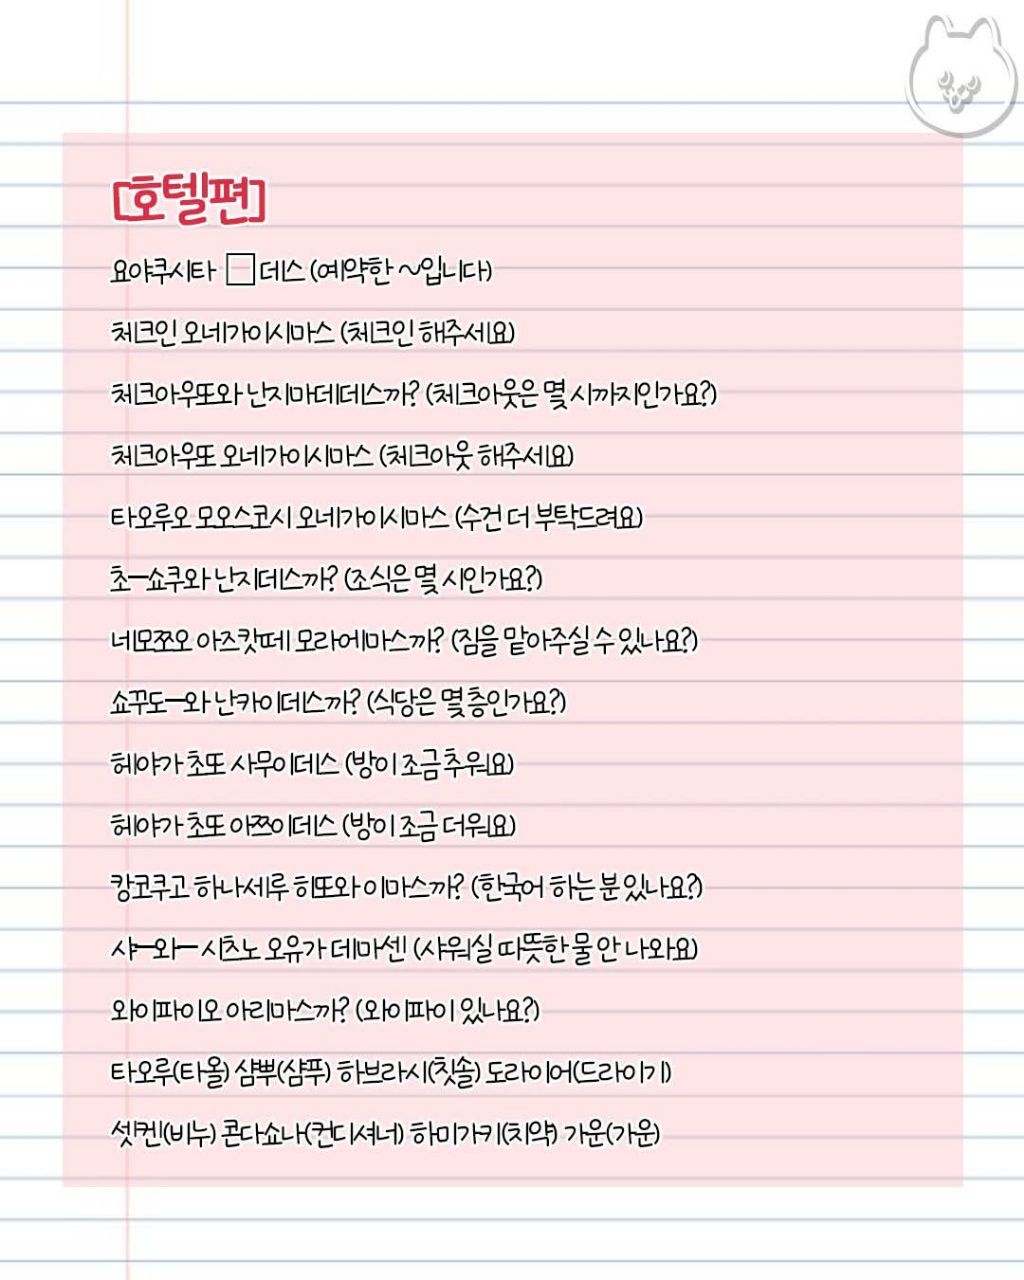 [호텔편]
요야쿠시타 □데스 (예약한 ~입니다)
체크인 오네가이시마스 (체크인 해주세요)
체크아우또와 난지마데데스까? (체크아웃은 몇 시까지인가요?)
체크아우또 오네가이시마스 (체크아웃 해주세요)
타오루오 모오스코시 오네가이시마스 (수건 더 부탁드려요)
초ー쇼쿠와 난지데스까? (조식은 몇 시인가요?)
네모쯔오 아즈캇떼 모라에마스까? (짐을 맡아주실 수 있나요?)
쇼꾸도ー와 난카이데스까? (식당은 몇 층인가요?)
헤야가 초또 사무이데스 (방이 조금 추워요)
헤야가 초또 아쯔이데스 (방이 조금 더워요)
캉코쿠고 하나세루 히또와 이마스까? (한국어 하는 분 있나요?)
샤ー와ー 시츠노 오유가 데마센 (샤워실 따뜻한 물 안 나와요)
와이파이오 아리마스까? (와이파이 있나요?)
타오루(타올) 샴뿌(샴푸) 하브라시(칫솔) 도라이어(드라이기)
셋켄(비누) 콘다쇼나(컨디셔네) 하미가키(치약) 가운(가운)